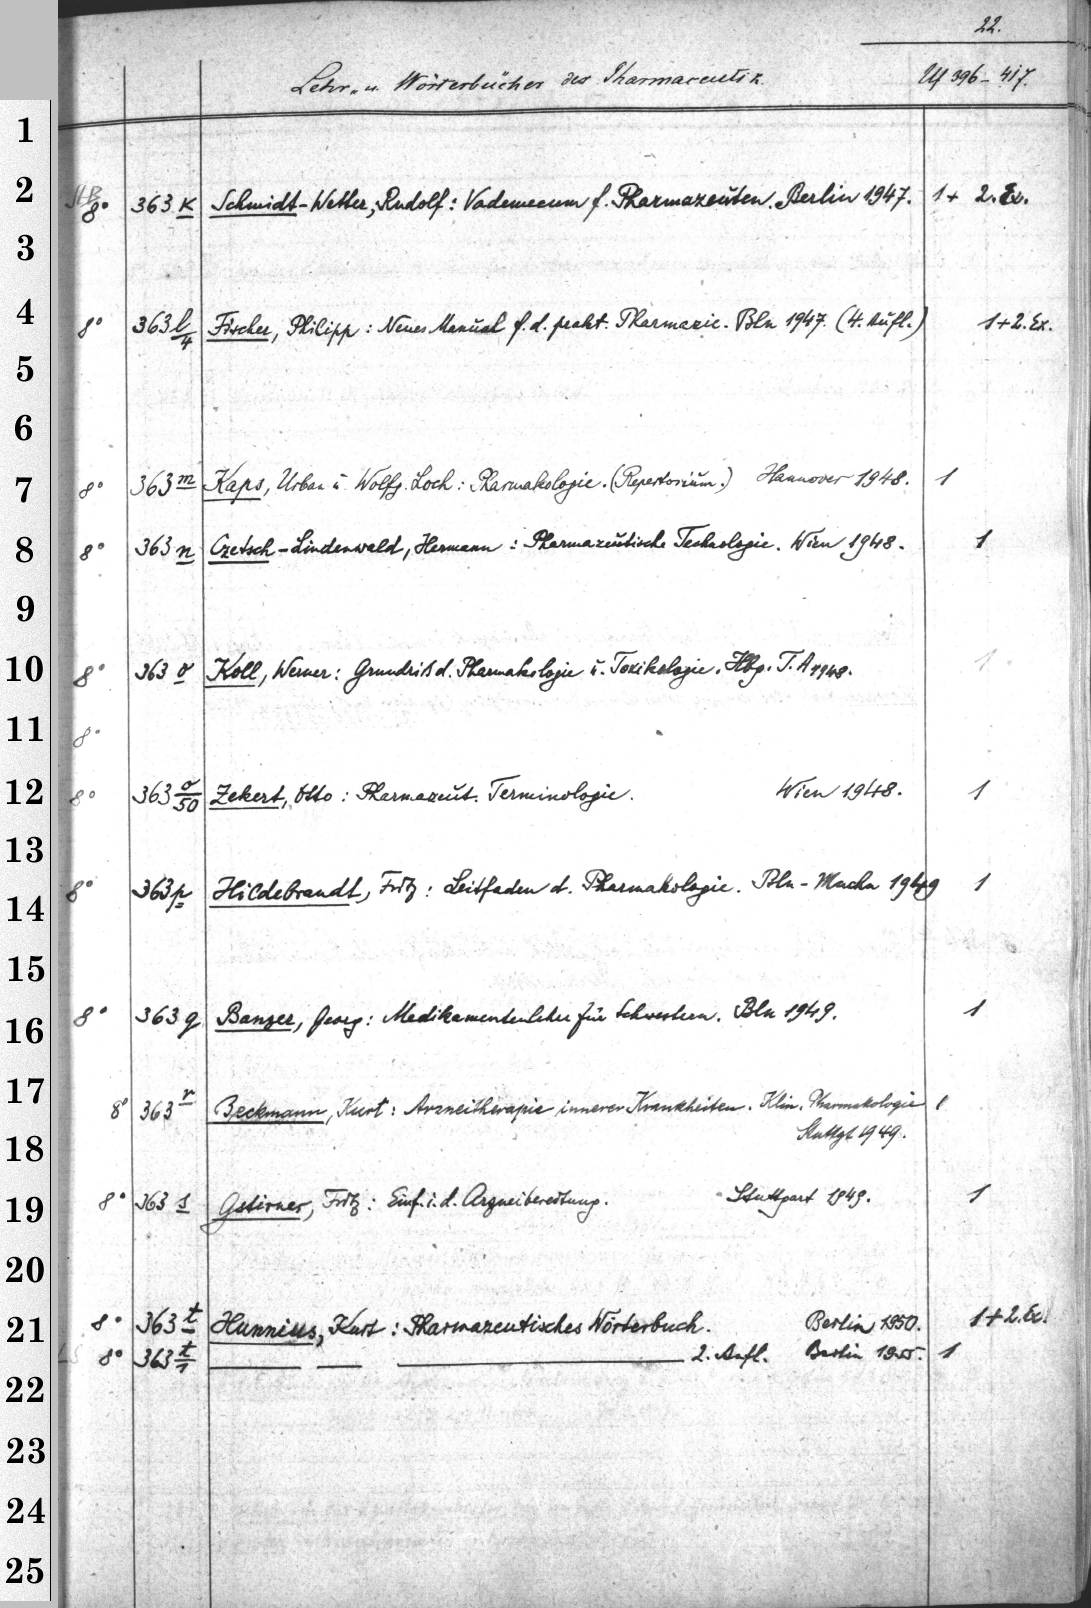 22.
Lehr- u. Wörterbücher der Pharmaceutik. 396-417.
1
2 8° 363 k Schmidt-Wetter, Rudolf: Vademecum f. Pharmazeuten. Berlin 1947. 1 + 2. Ex.
3
4 8° 363 l/4 Fischer, Philipp: Neues Manual f. d. prakt. Pharmazie. Bln 1947. (4. Aufl.) 1 + 2. Ex.
5
6
7 8° 363 m Kaps, Urban u. Wolfg. Loch: Pharmakologie. (Repertorium.) Hannover 1948. 1
8 8° 363 n Czetsch-Lindenwald, Hermann: Pharmazeutische Technologie. Wien 1948. 1
9
10 8° 363 o Koll, Werner: Grundriß d. Pharmakologie u. Toxikologie. Hbg. T. A 1948. 1
11 8°
12 8° 363 o/50 Zekert, Otto: Pharmazeut. Terminologie. Wien 1948. 1
13
14 8° 363 p Hildebrandt, Fritz: Leitfaden d. Pharmakologie. Bln-Mnchn 1949 1
15
16 8° 363 q Banzer, Georg: Medikamentenlehre für Schwestern. Bln 1949. 1
17 8° 363 r Beckmann, Kurt: Arzneitherapie innerer Krankheiten. Klin. Pharmakologie 1
18 Stuttgt 1949.
19 8° 363 s Gstirner, Fritz: Einf. i. d. Arzneibereitung. Stuttgart 1949. 1
20
21 8° 363 t Hunnius, Kurt: Pharmazeutisches Wörterbuch. Berlin 1950. 1 + 2. Ex.
8° 363 t/1 — — — 2. Aufl. Berlin 1955. 1
22
23
24
25